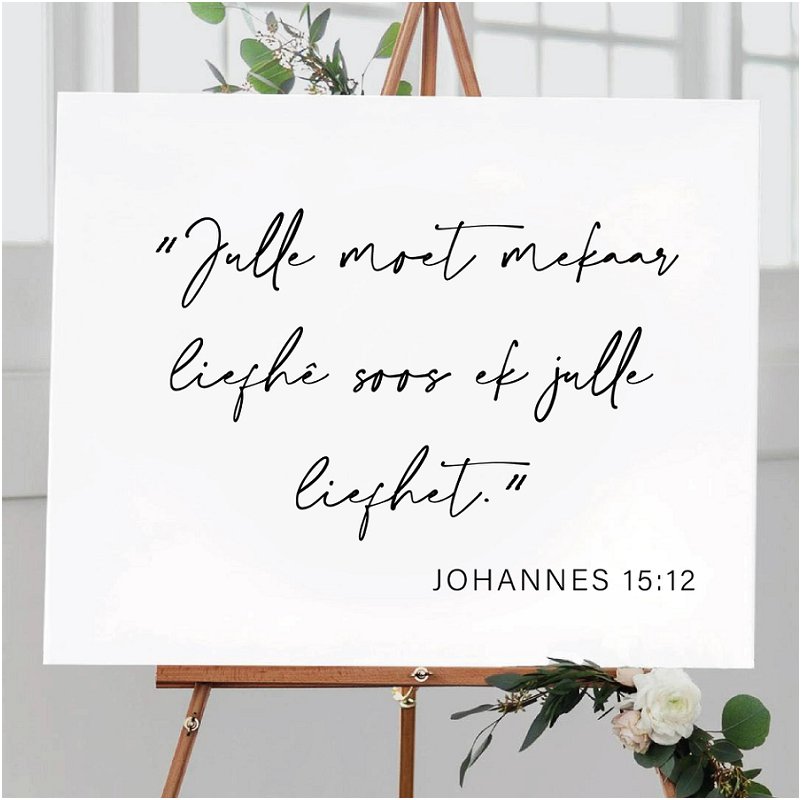 "Julle moet mekaar
liefhê soos ek julle
liefhet."
JOHANNES 15:12